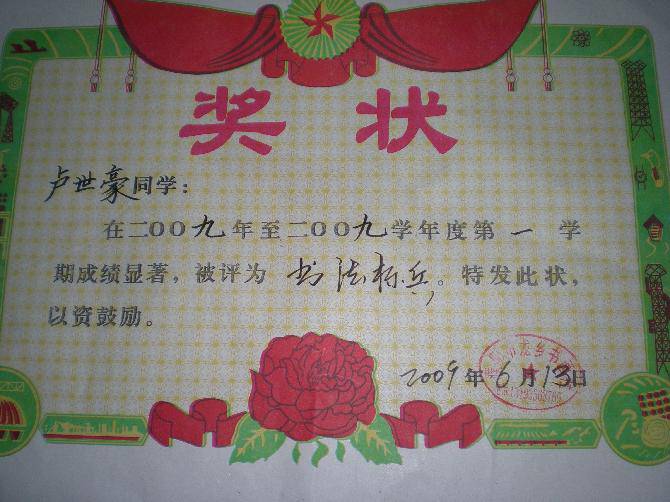 奖状
卢世豪同学：
在二〇〇九年至二〇〇九学年度第一学
期成绩显著，被评为书法标兵。特发此状，
以资鼓励。
2009年6月13日